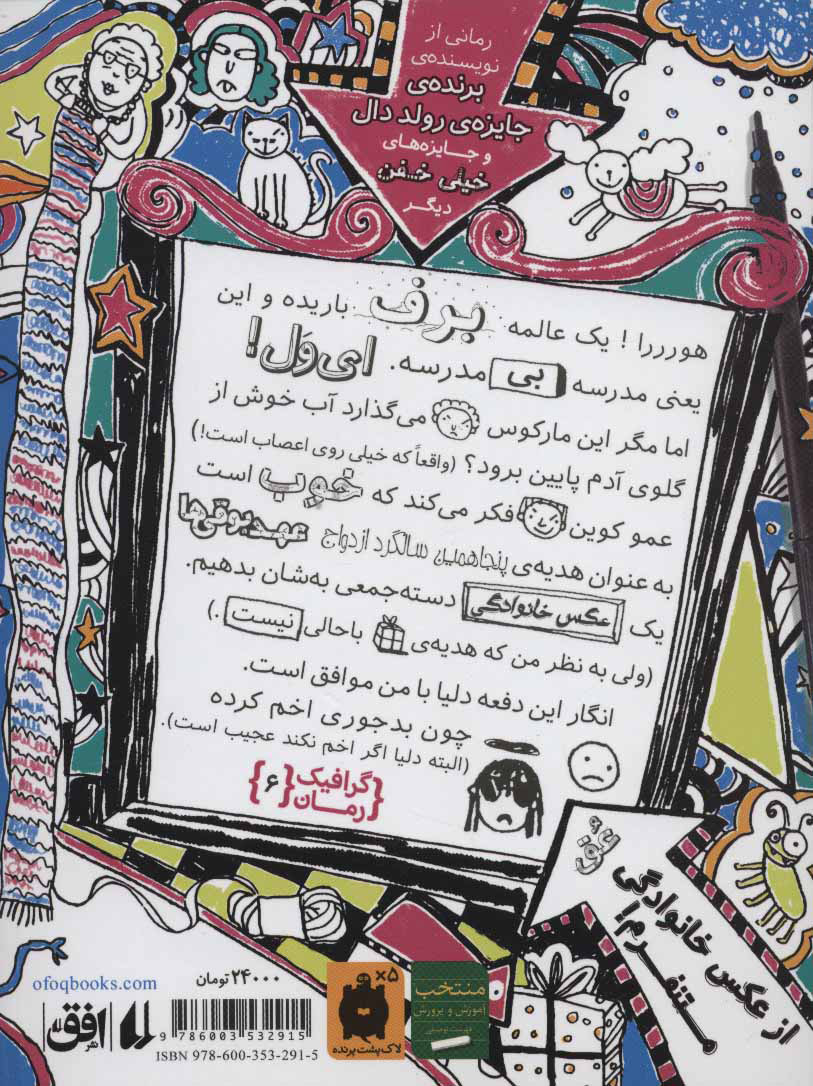 رمانی از
نویسنده‌ی
برنده‌ی
جایزه‌ی رولد دال
و جایزه‌های
خیلی خفن
دیگر
هوررررا ! یک عالمه برف باریده و این
یعنی مدرسه بی مدرسه. ای‌وَل!
اما مگر این مارکوس می‌گذارد آب خوش از
گلوی آدم پایین برود؟ (واقعاً که خیلی روی اعصاب است!)
عمو کوین فکر می‌کند که خوب است
به عنوان هدیه‌ی پنجاهمین سالگرد ازدواج عهدبوقی‌ها
یک عکس خانوادگی دسته‌جمعی به‌شان بدهیم.
(ولی به نظر من که هدیه‌ی باحالی نیست.)
انگار این دفعه دلیا با من موافق است.
چون بدجوری اخم کرده
(البته دلیا اگر اخم نکند عجیب است).
{گرافیک رمان}
{۶}
عق
از عکس خانوادگی
متنفرم!
ofoqbooks.com
۲۴۰۰۰ تومان
9 786003 532915
ISBN 978-600-353-291-5
نشر افق
۵×
لاک‌پشت پرنده
منتخب
آموزش و پرورش